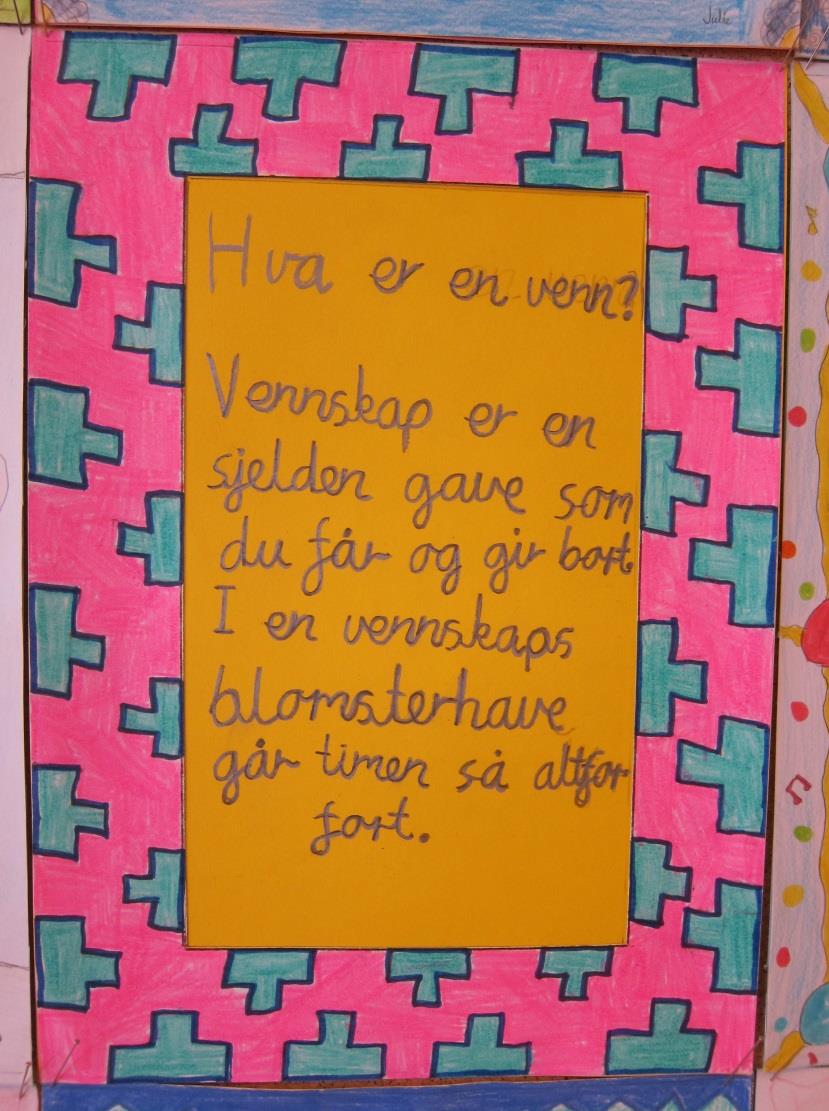 Julie
Hva er en venn?
Vennskap er en
sjelden gave som
du får og gir bort.
I en vennskaps
blomsterhave
går timen så altfor
fort.